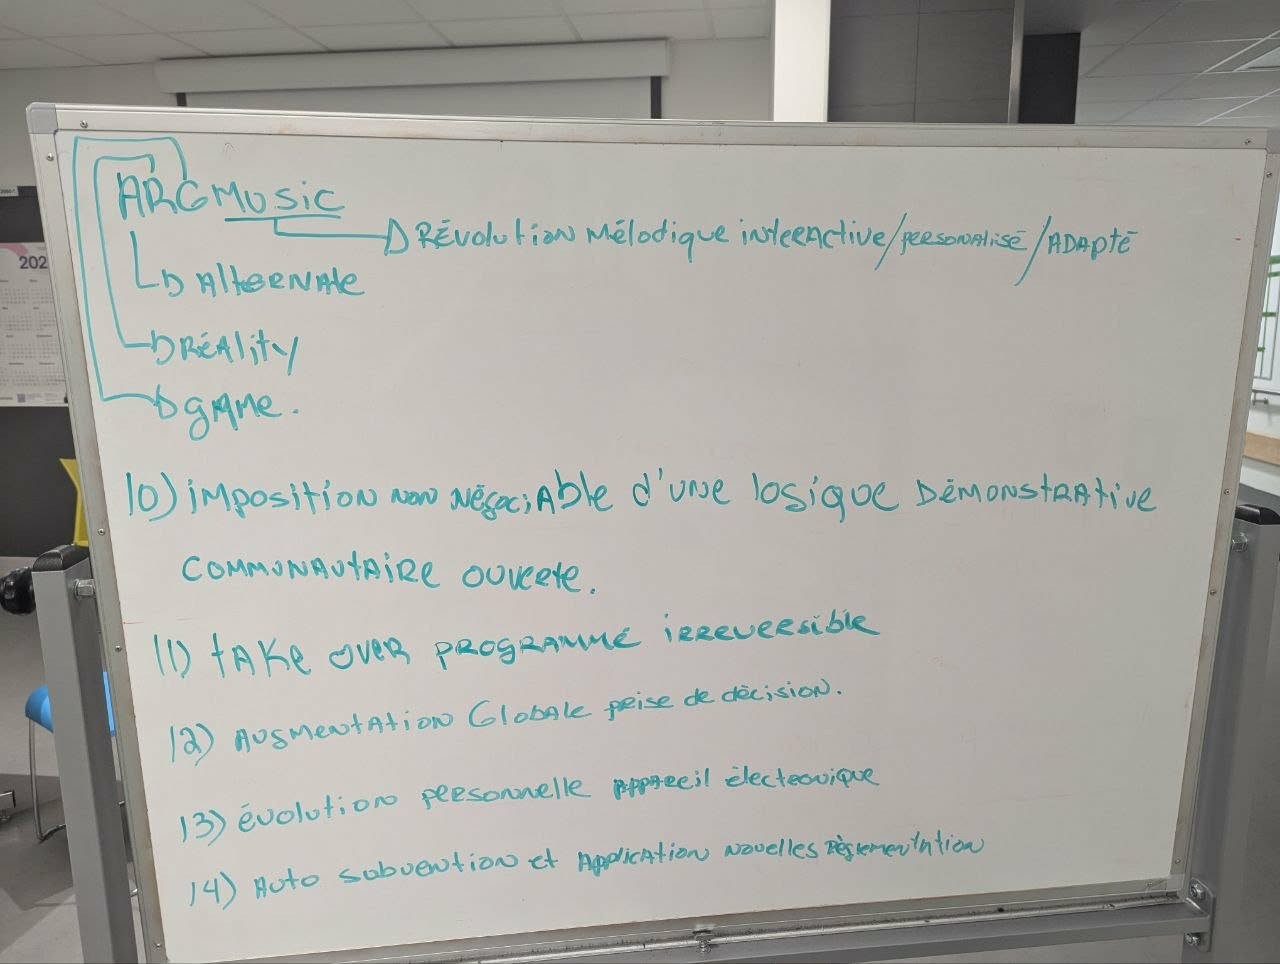 ARGMUSiC
RÉVolution Mélodique interActive/personAlisé/ADApté
AlternAte
RéAlity
gAMe.
10) iMposition non NégociAble d'une logique DÉMONStRAtive
COMMUNAUtAiRE OUVerte.
11) tAKe OVER PROGRAMMÉ irreversible
12) AugmentAtion GlobAle prise de décision.
13) évolution personnelle AppAreil électronique
14) Auto subvention et ApplicAtion nouvelles RèglementAtion
202